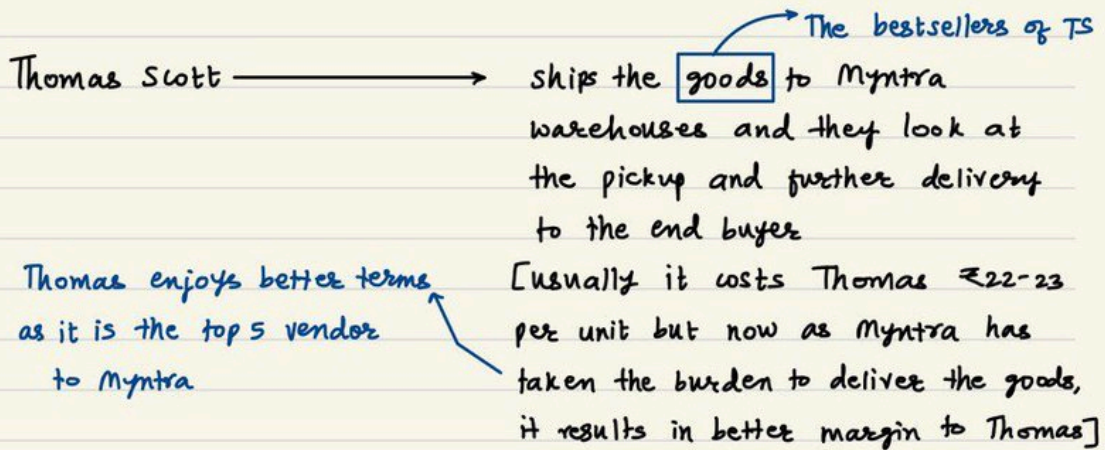 The bestsellers of TS
Thomas Scott
ships the goods to Myntra
warehouses and they look at
the pickup and further delivery
to the end buyer
[usually it costs Thomas ₹22-23
per unit but now as Myntra has
taken the burden to deliver the goods,
it results in better margin to Thomas]
Thomas enjoys better terms
as it is the top 5 vendor
to Myntra